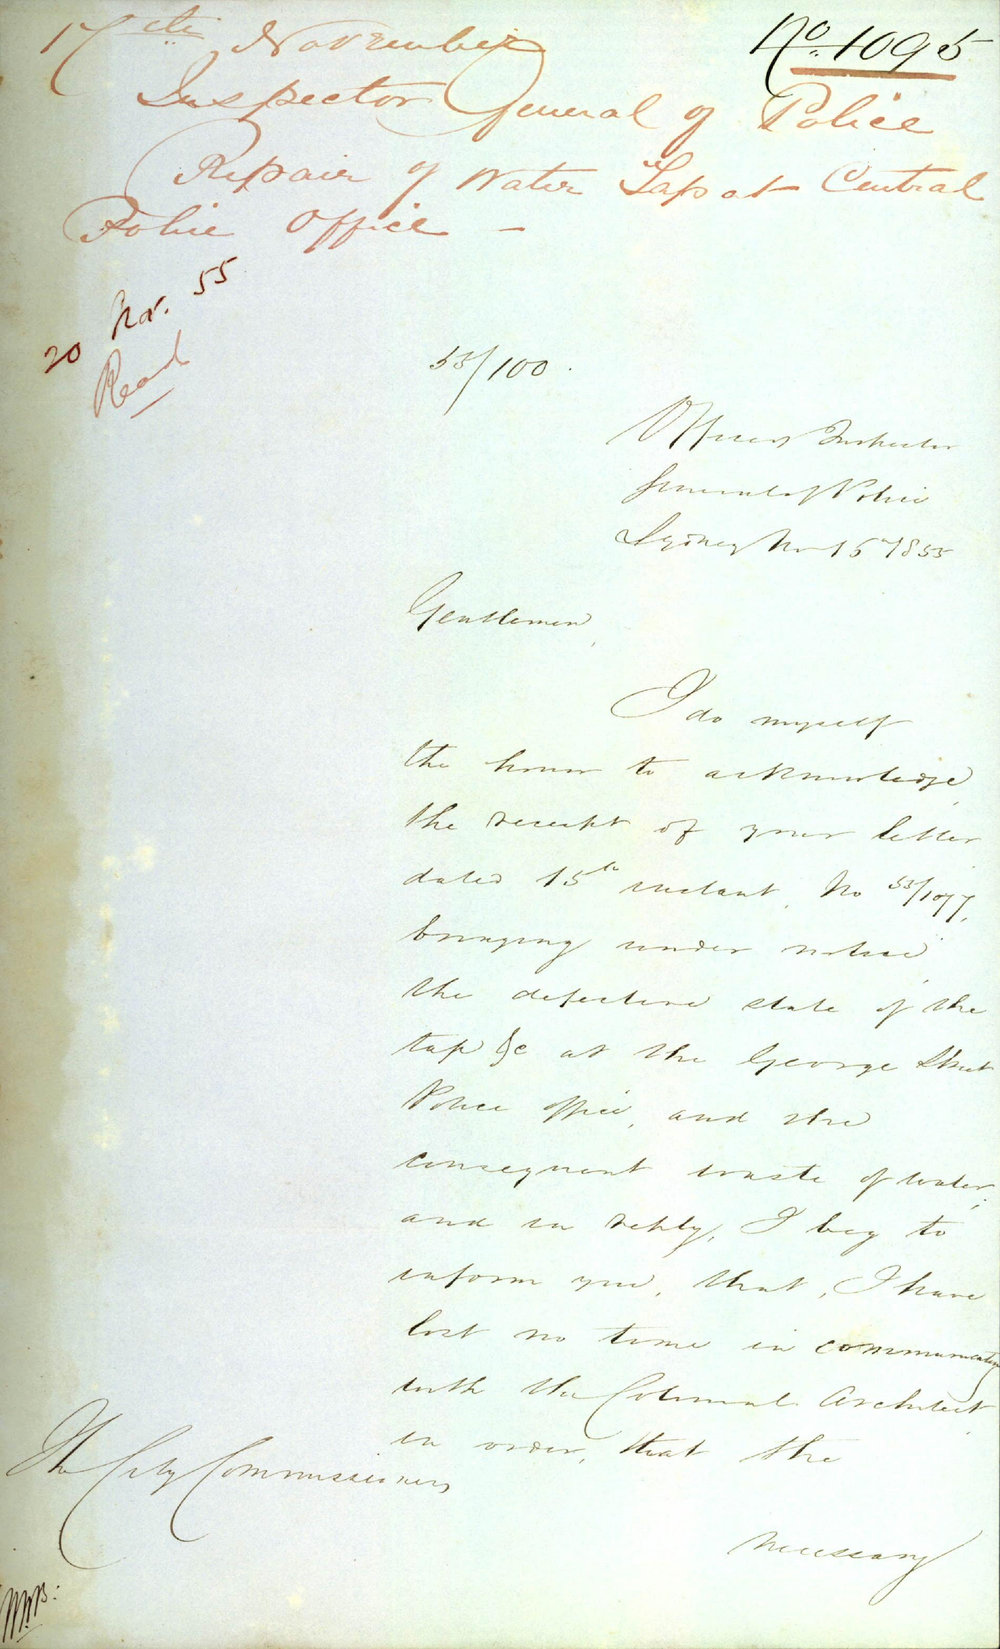 17th November
No. 1095
Inspector General of Police
Repair of Water Taps at Central
Police Office —
20 Nov. 55
Read
55/100.
Office of Inspector
General of Police
Sydney Nov 15th 1855
Gentlemen,
I do myself
the honor to acknowledge
the receipt of your letter
dated 15th instant, No 55/1077,
bringing under notice
the defective state of the
tap &c at the George Street
Police office, and the
consequent waste of water,
and in reply, I beg to
inform you, that, I have
lost no time in communicating
with the Colonial Architect
in order, that the
The City Commissioners
necessary